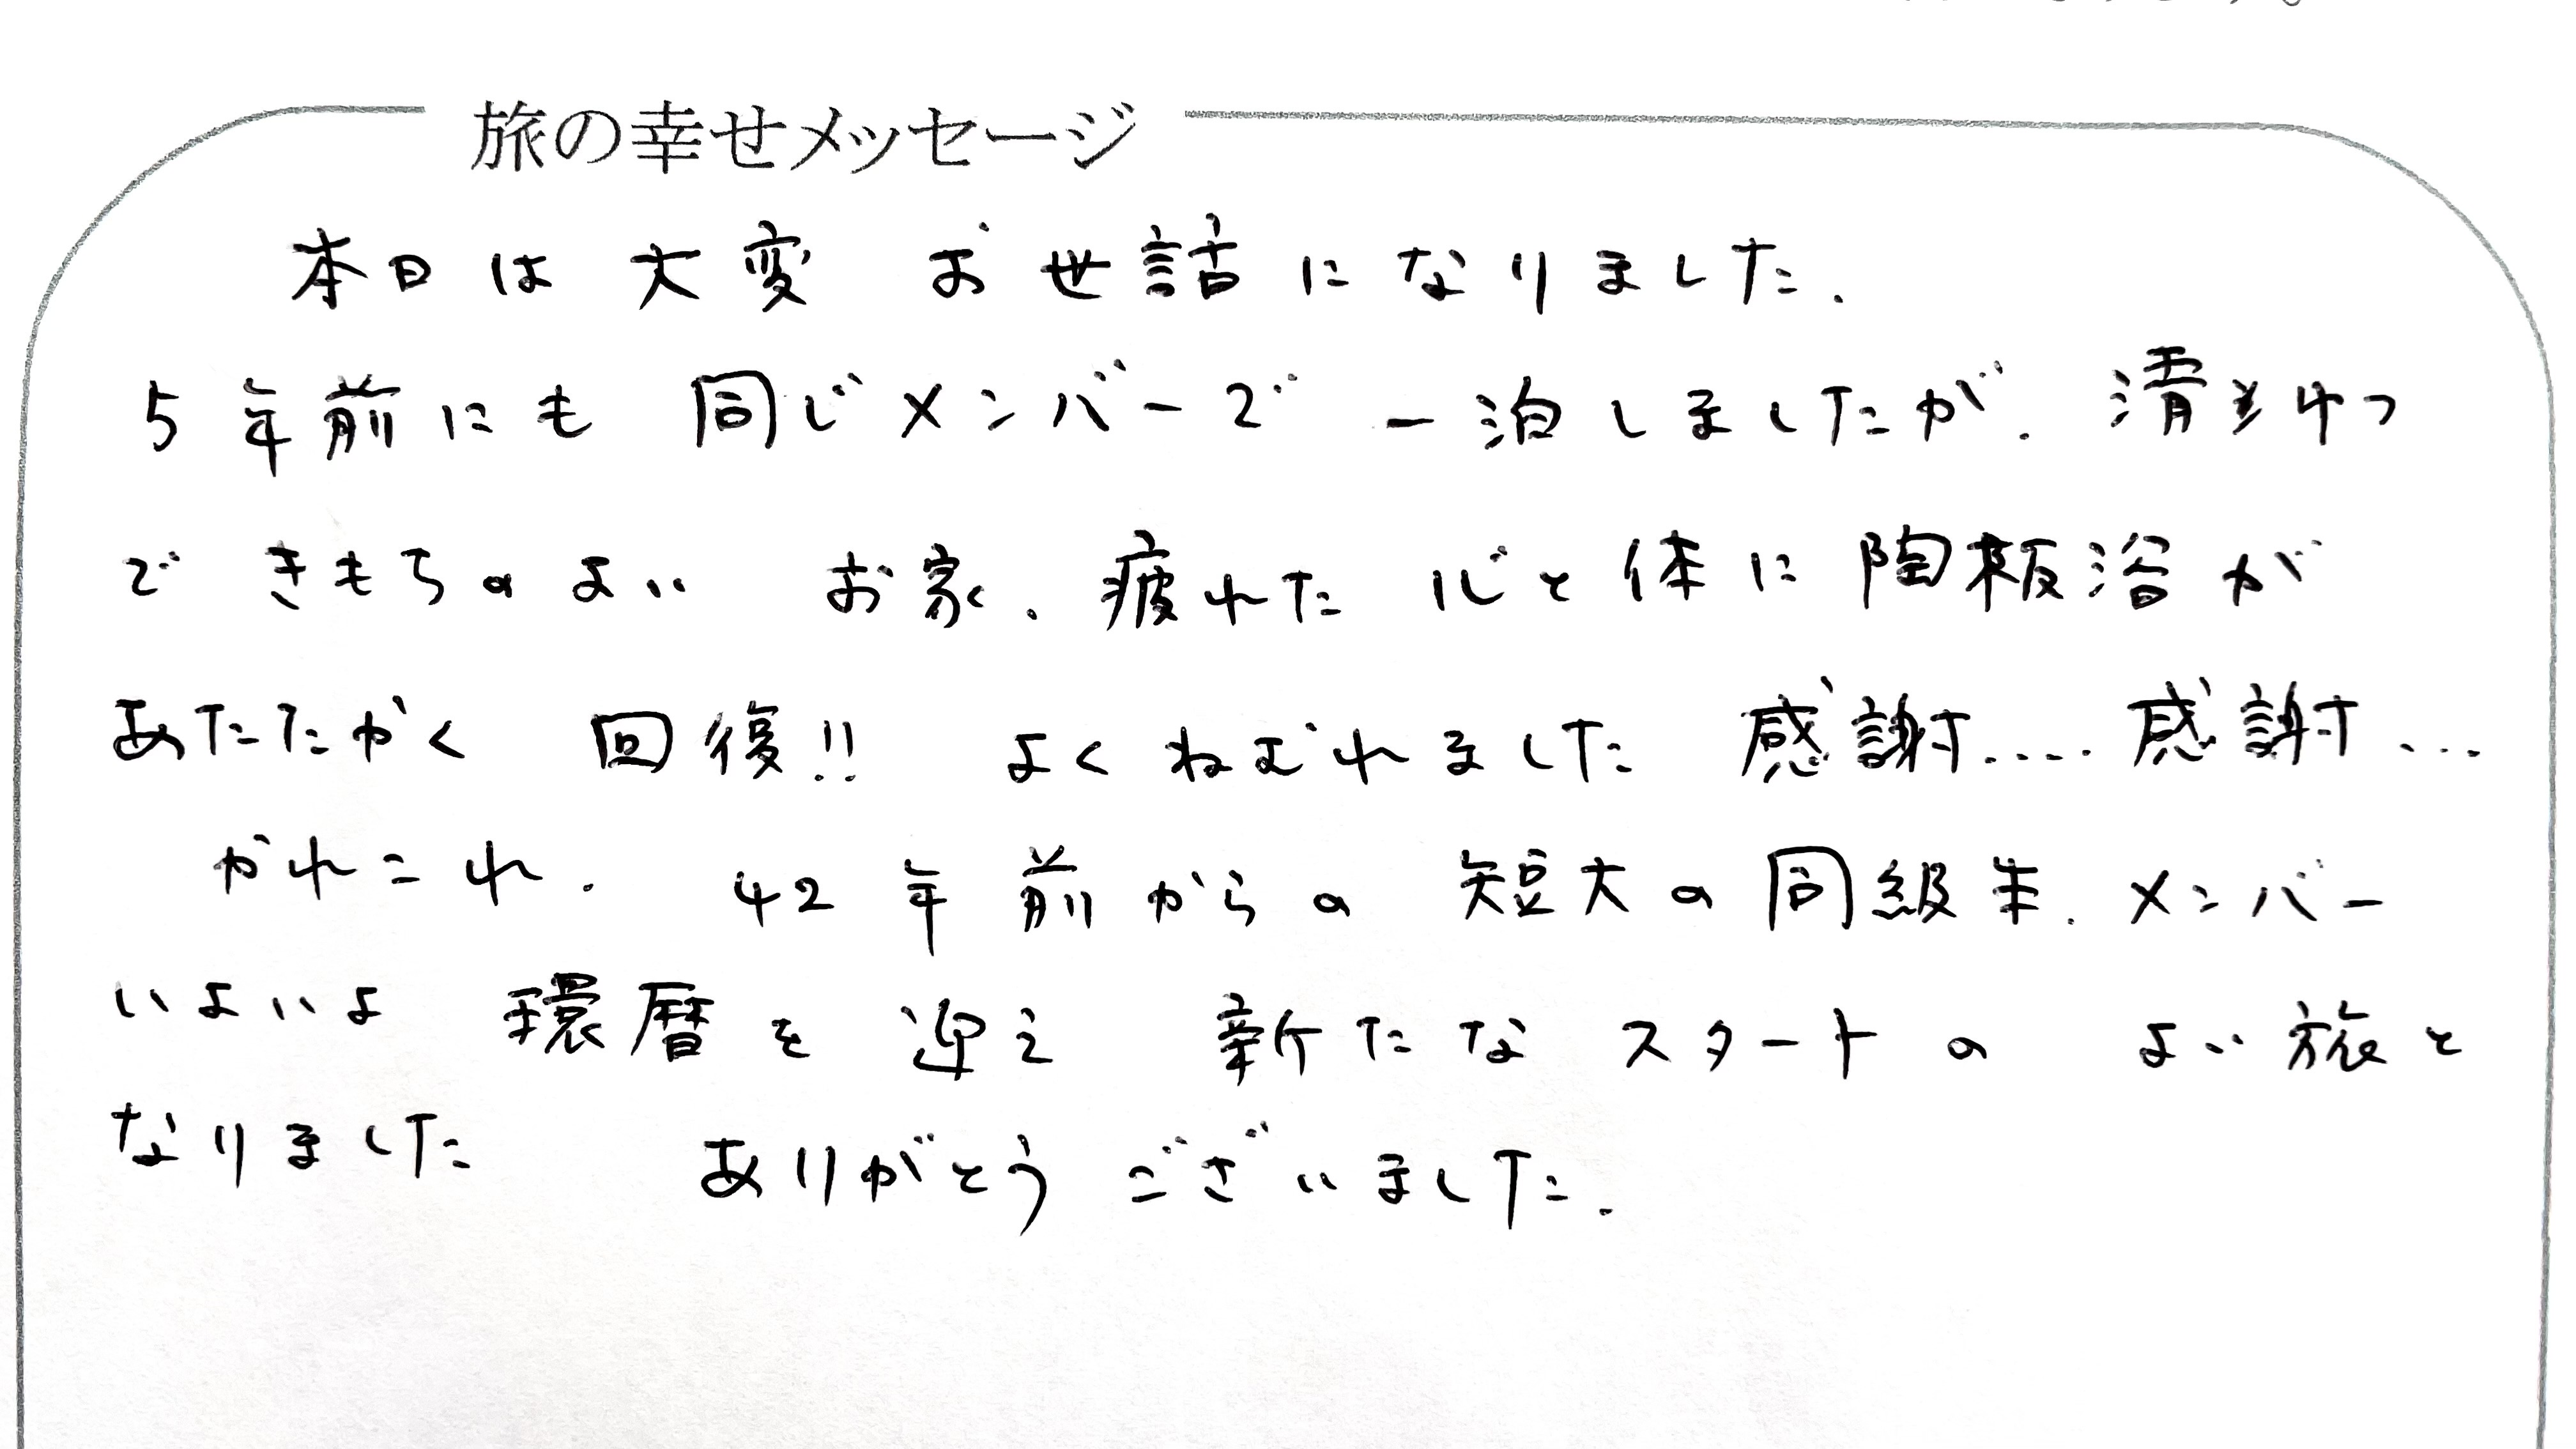 旅の幸せメッセージ
本日は大変 お世話になりました.
5年前にも 同じメンバーで 一泊しましたが. 清潔
で きもちのよい お家. 疲れた 心と体に 陶板浴が
あたたかく 回復!! よくねむれました 感謝.... 感謝...
かれこれ. 42年前からの 短大の同級生. メンバー
いよいよ 環暦を迎え 新たな スタートの よい旅と
なりました ありがとう ございました.